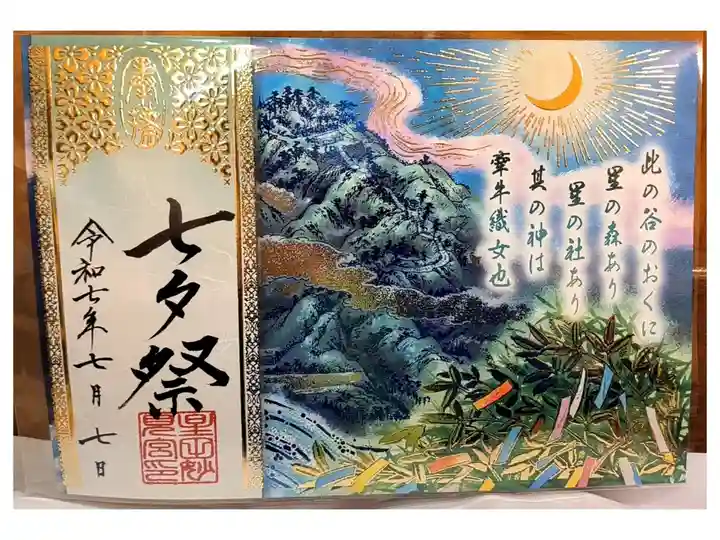 此の谷のおくに
星の森あり
星の社あり
其の神は
牽牛織女也
奉拝
七夕祭
令和七年七月七日